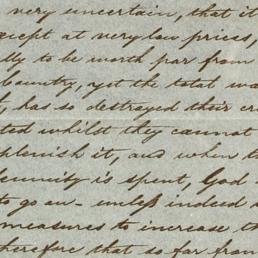 very uncertain, that it
except at very low prices,
to be worth par from
bounty, yet the total wa
has so destroyed their cre
ted whilst they cannot
plenish it, and when th
is spent, God
to go on - unless indeed
measures to increase th
therefore that so far from